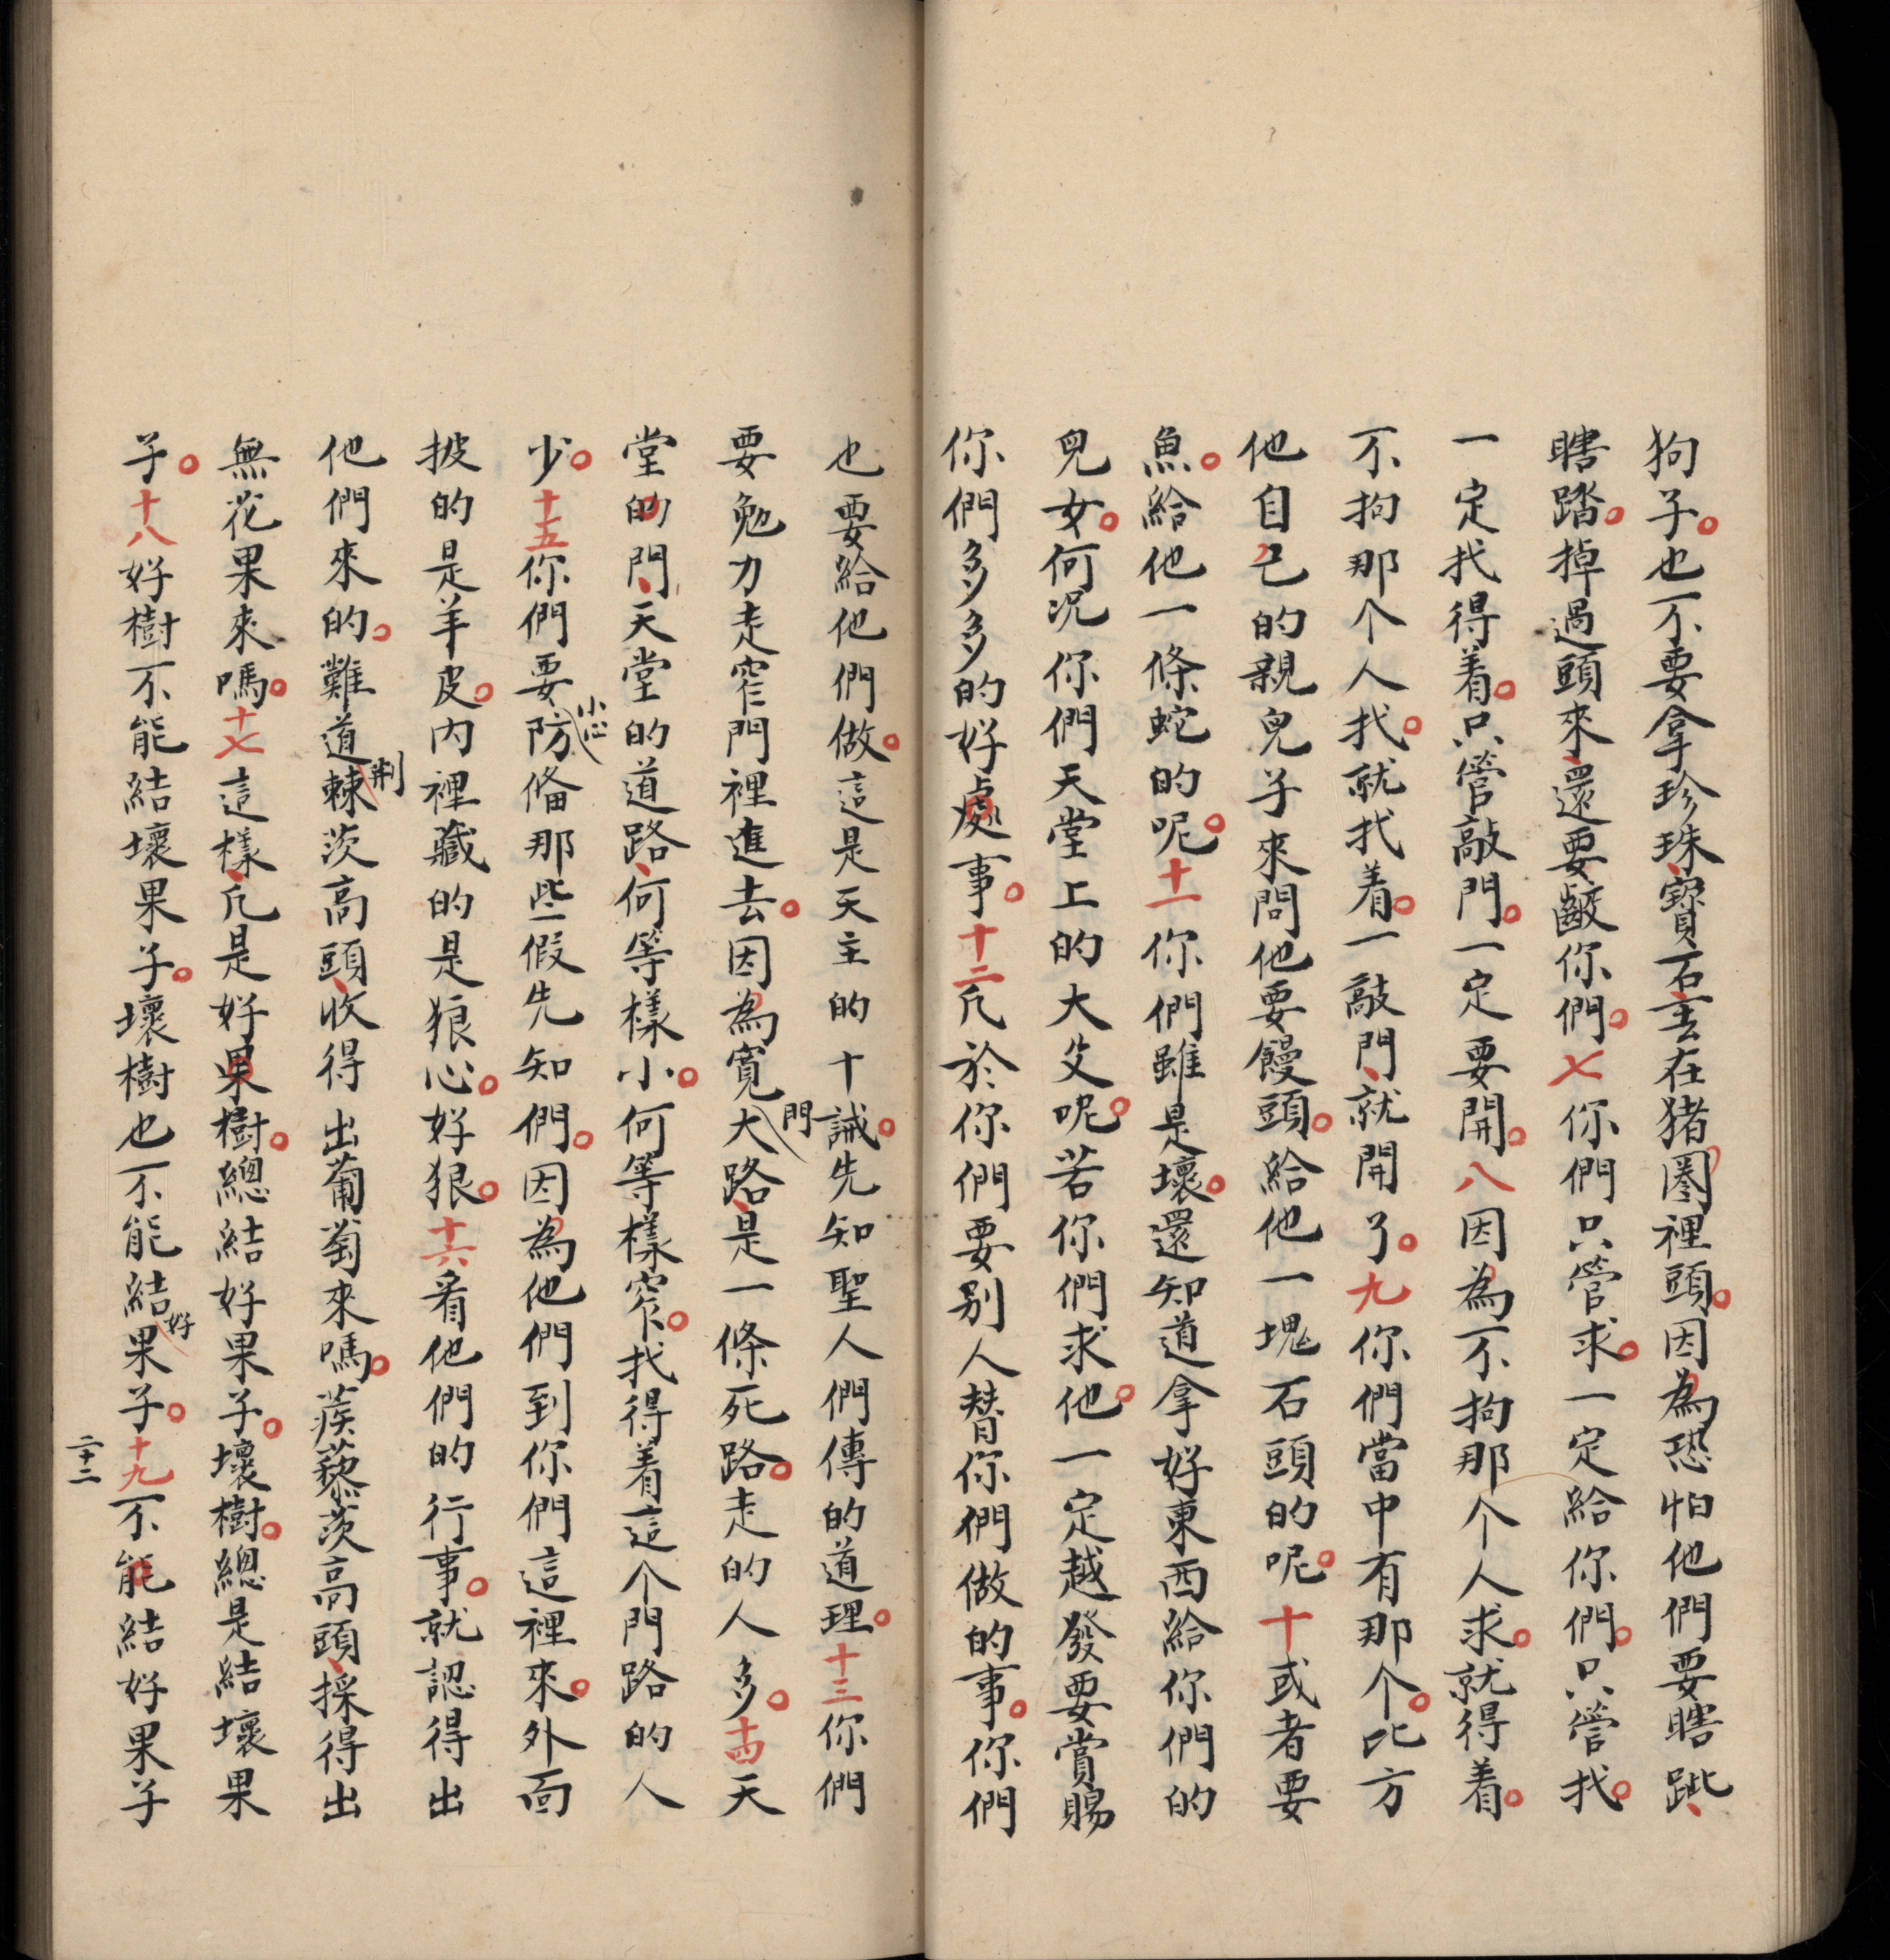 狗子。也不要拿珍珠、寶石、丟在猪圈裡頭。因為恐怕他們要瞎跐、
瞎踏。掉過頭來、還要齩你們。七你們只管求。一定給你們。只管找。
一定找得着。只管敲門。一定要開。八因為不拘那个人求。就得着。
不拘那个人找。就找着。一敲門、就開了。九你們當中有那个。比方
他自己的親兒子來問他要饅頭。給他一塊石頭的呢。十或者要
魚。給他一條蛇的呢。十一你們雖是壞。還知道拿好東西給你們的
兒女。何况你們天堂上的大父呢。若你們求他。一定越發要賞賜
你們多多的好處事。十二凡於你們要别人替你們做的事。你們
也要給他們做。這是天主的十誡。先知聖人們傳的道理。十三你們
要勉力走窄門裡進去。因為寬大門路、是一條死路。走的人多。十四天
堂的門、天堂的道路、何等樣小。何等樣窄。找得着這个門路的人
少。十五你們要小心防俻那些假先知們。因為他們到你們這裡來。外面
披的是羊皮。内裡藏的是狼心。好狠。十六看他們的行事。就認得出
他們來的。難道荆棘茨高頭、收得出葡萄來嗎。蒺藜茨高頭、採得出
無花果來嗎。十七這樣、凡是好果樹。總結好果子。壞樹。總是結壞果
子。十八好樹不能結壞果子。壞樹也不能結好果子。十九不能結好果子
二十二